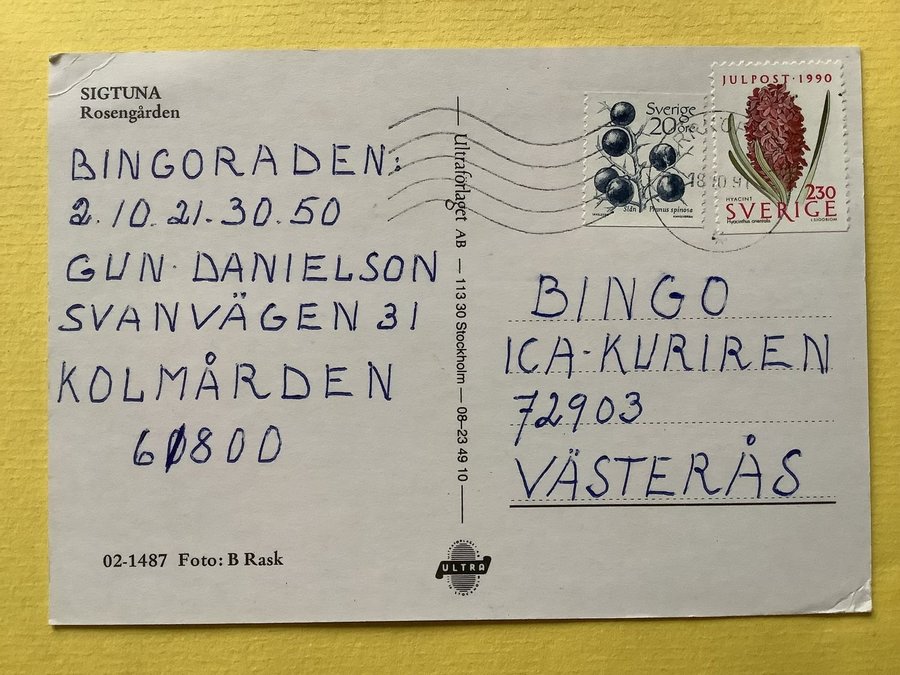 SIGTUNA
Rosengården
BINGORADEN:
2.10.21.30.50
GUN DANIELSON
SVANVÄGEN 31
KOLMÅRDEN
61800
02-1487 Foto: B Rask
Ultraförlaget AB — 113 30 Stockholm — 08-23 49 10
ULTRA
Sverige
20 öre
Slån Prunus spinosa
JULPOST·1990
HYACINT
Hyacinthus orientalis
230
SVERIGE
18 10 91
BINGO
ICA-KURIREN
72903
VÄSTERÅS